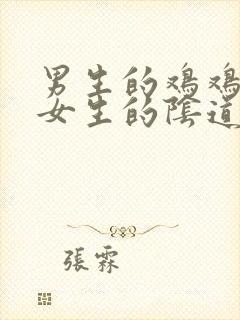 男生的鸡鸡
女生的陰道
張霖